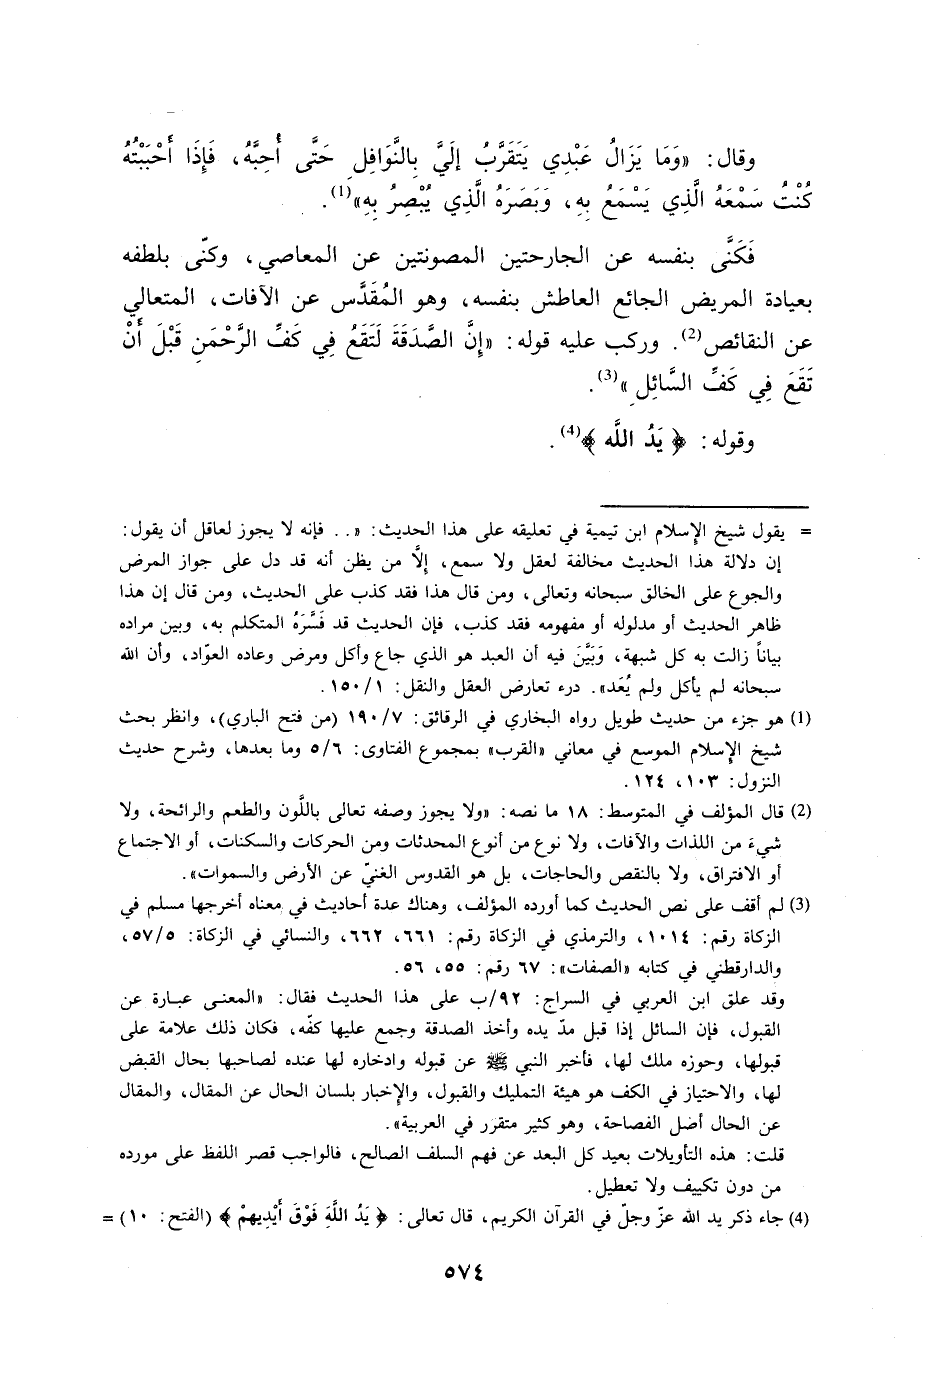 وقال: «وَمَا يَزَالُ عَبْدِي يَتَقَرَّبُ إِلَيَّ بِالنَّوَافِلِ حَتَّى أُحِبَّهُ، فَإِذَا أَحْبَبْتُهُ
كُنْتُ سَمْعَهُ الَّذِي يَسْمَعُ بِهِ، وَبَصَرَهُ الَّذِي يُبْصِرُ بِهِ»(1).
فَكَنَّى بنفسه عن الجارحتين المصونتين عن المعاصي، وكنّى بلطفه
بعيادة المريض الجائع العاطش بنفسه، وهو المُقَدَّس عن الآفات، المتعالي
عن النقائص(2). وركب عليه قوله: «إِنَّ الصَّدَقَةَ لَتَقَعُ فِي كَفِّ الرَّحْمَنِ قَبْلَ أَنْ
تَقَعَ فِي كَفِّ السَّائِلِ»(3).
وقوله: ﴿ يَدُ اللَّه ﴾(4).
= يقول شيخ الإسلام ابن تيمية في تعليقه على هذا الحديث: «.. فإنه لا يجوز لعاقل أن يقول:
إن دلالة هذا الحديث مخالفة لعقل ولا سمع، إلَّا من يظن أنه قد دل على جواز المرض
والجوع على الخالق سبحانه وتعالى، ومن قال هذا فقد كذب على الحديث، ومن قال إن هذا
ظاهر الحديث أو مدلوله أو مفهومه فقد كذب، فإن الحديث قد فَسَّرَهُ المتكلم به، وبين مراده
بياناً زالت به كل شبهة، وَبَيَّنَ فيه أن العبد هو الذي جاع وأكل ومرض وعاده العوّاد، وأن الله
سبحانه لم يأكل ولم يُعَد». درء تعارض العقل والنقل: ١/١٥٠.
(1) هو جزء من حديث طويل رواه البخاري في الرقائق: ٧/١٩٠ (من فتح الباري)، وانظر بحث
شيخ الإسلام الموسع في معاني «القرب» بمجموع الفتاوى: ٦/٥ وما بعدها، وشرح حديث
النزول: ١٠٣، ١٢٤.
(2) قال المؤلف في المتوسط: ١٨ ما نصه: «ولا يجوز وصفه تعالى باللَّون والطعم والرائحة، ولا
شيءَ من اللذات والآفات، ولا نوع من أنوع المحدثات ومن الحركات والسكنات، أو الاجتماع
أو الافتراق، ولا بالنقص والحاجات، بل هو القدوس الغنيّ عن الأرض والسموات».
(3) لم أقف على نص الحديث كما أورده المؤلف، وهناك عدة أحاديث في معناه أخرجها مسلم في
الزكاة رقم: ١٠١٤، والترمذي في الزكاة رقم: ٦٦١، ٦٦٢، والنسائي في الزكاة: ٥/٥٧،
والدارقطني في كتابه «الصفات»: ٦٧ رقم: ٥٥، ٥٦.
وقد علق ابن العربي في السراج: ٩٢/ب على هذا الحديث فقال: «المعنى عبارة عن
القبول، فإن السائل إذا قبل مدّ يده وأخذ الصدقة وجمع عليها كفّه، فكان ذلك علامة على
قبولها، وحوزه ملك لها، فأخبر النبي ﷺ عن قبوله وادخاره لها عنده لصاحبها بحال القبض
لها، والاحتياز في الكف هو هيئة التمليك والقبول، والإخبار بلسان الحال عن المقال، والمقال
عن الحال أصل الفصاحة، وهو كثير متقرر في العربية».
قلت: هذه التأويلات بعيد كل البعد عن فهم السلف الصالح، فالواجب قصر اللفظ على مورده
من دون تكييف ولا تعطيل.
(4) جاء ذكر يد الله عزّ وجلّ في القرآن الكريم، قال تعالى: ﴿ يَدُ اللَّهِ فَوْقَ أَيْدِيهِمْ ﴾ (الفتح: ١٠) =
٥٧٤